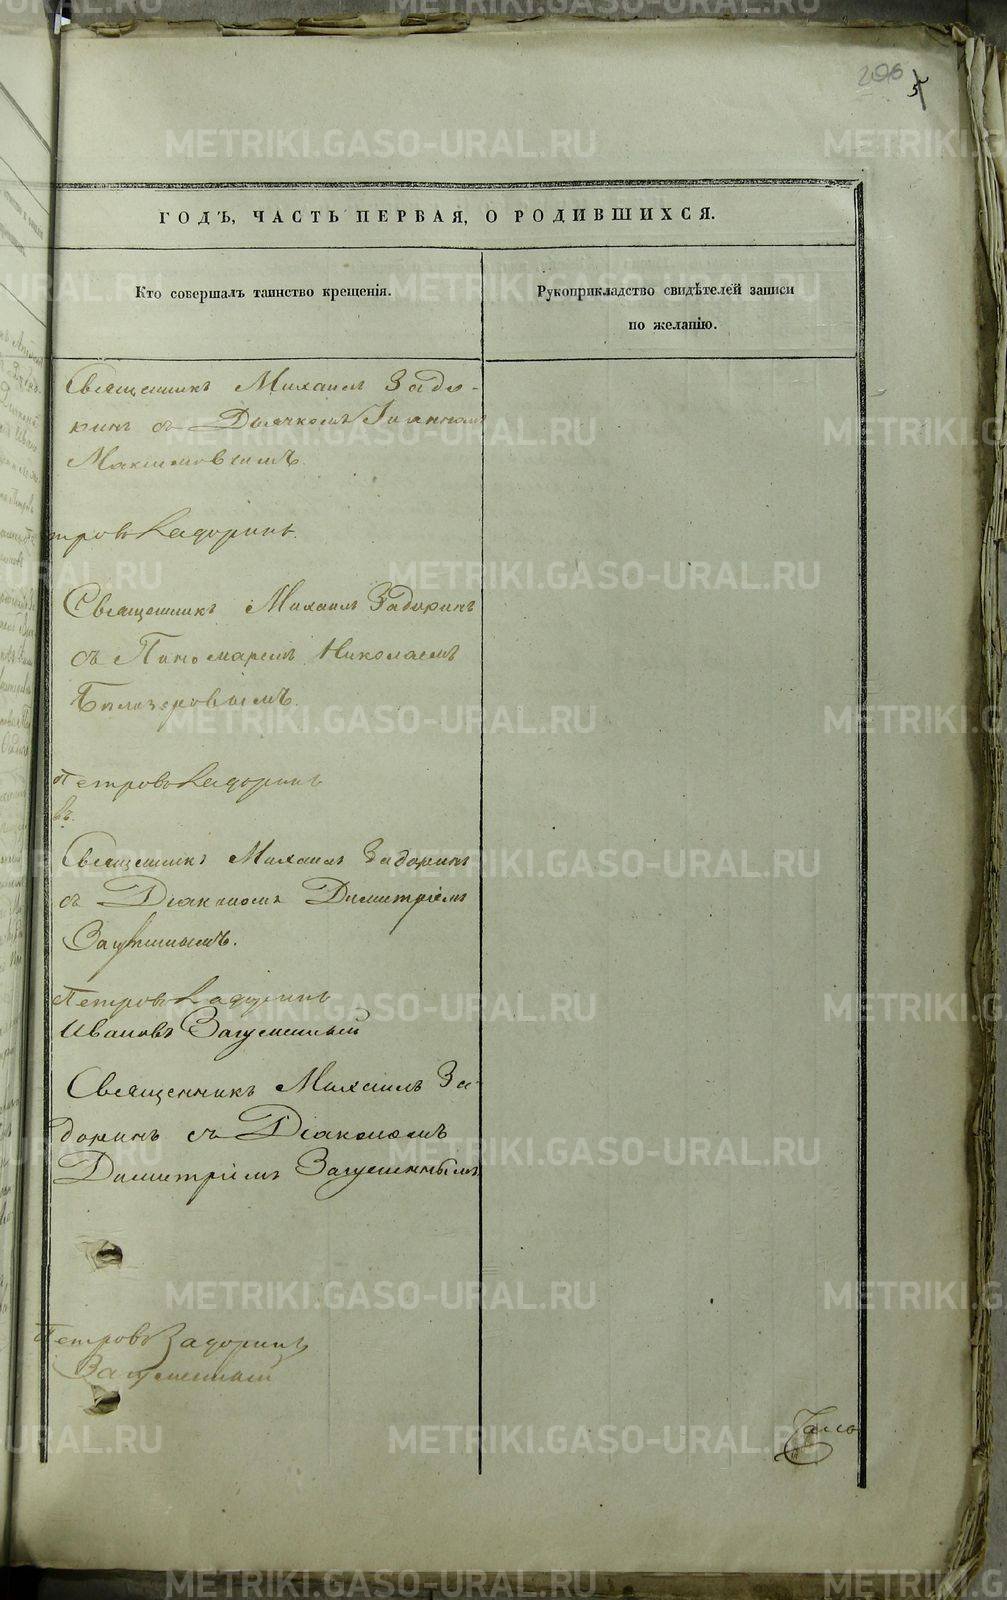 206
5
ГОДЪ, ЧАСТЬ ПЕРВАЯ, О РОДИВШИХСЯ.
Кто совершалъ таинство крещенія.
Рукоприкладство свидѣтелей записи
по желанію.
Священникъ Михаилъ Задо-
ринъ съ Дьячкомъ Іоанномъ
Максимовымъ.
тровъ Задоринъ.
Священникъ Михаилъ Задоринъ
съ Пономаремъ Николаемъ
Бѣлозеровымъ.
Петровъ Задоринъ
въ.
Священникъ Михаилъ Задоринъ
съ Діакономъ Димитріемъ
Петровъ Задоринъ
Ивановъ Загуменный
Священникъ Михаилъ За-
доринъ съ Діакономъ
Димитріемъ Загуменнымъ
Петровъ Задоринъ
Загуменный
METRIKI.GASO-URAL.RU